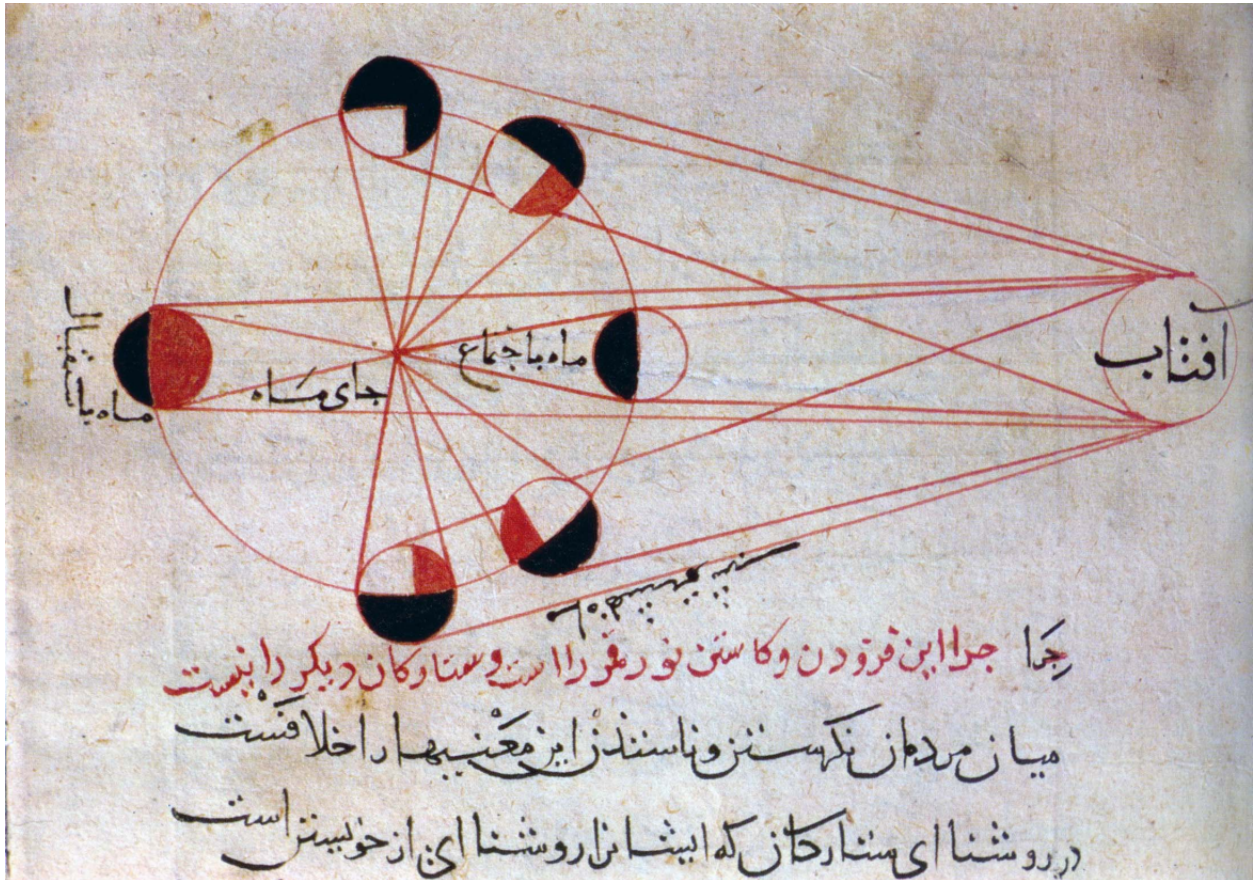 افتاب
ماه باجتماع
جای ماه
ماه باستقبال
چرا چرا این فزودن و کاستن نور قمر را است و ستارکان دیکر را نیست
میان مردمان نکرستن و اندر این معنیها را خلافست
در روشنا ای ستارکان که ایشانرا روشنا ای از خویشتن است